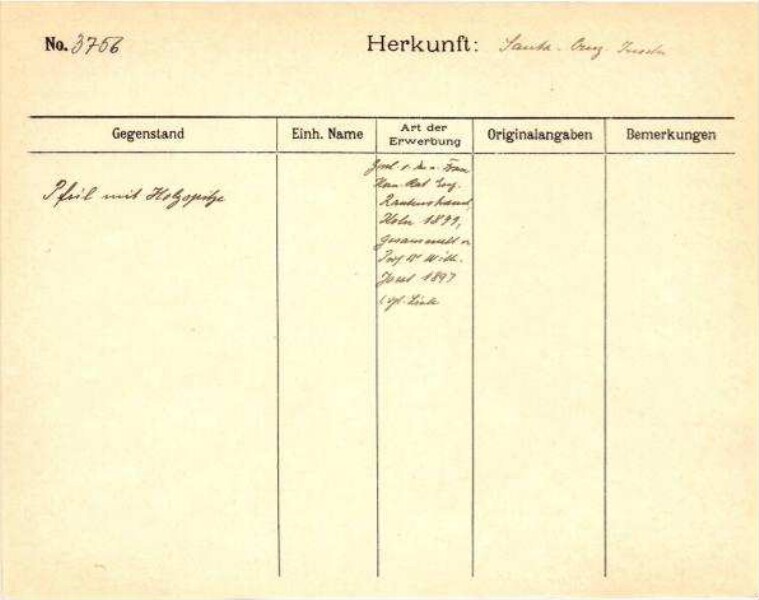 No. 3756 Herkunft: Santa-Cruz-Inseln
Gegenstand Einh. Name Art der Erwerbung Originalangaben Bemerkungen
Pfeil mit Holzspitze
Frau
Rat Eug.
Rautenstrauch,
Köln 1899,
gesammelt v.
Prof. Dr. Wilh.
Joest 1897